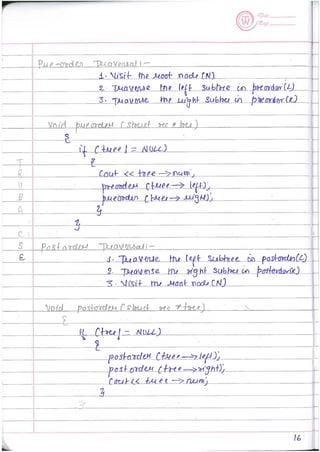 Pre-order Traversal :-
1. Visit the root node (N)
2. Traverse the left subtree in preorder (L)
3. Traverse the right subtree in preorder (R)
void preorder (struct rec * tree)
{
if (tree != NULL)
{
cout << tree -> num;
preorder (tree -> left);
preorder (tree -> right);
}
}
Postorder Traversal :-
1. Traverse the left subtree in postorder (L)
2. Traverse the right subtree in postorder (R)
3. Visit the root node (N)
void postorder (struct rec * tree)
{
if (tree != NULL)
{
postorder (tree -> left);
postorder (tree -> right);
cout << tree -> num;
}
16